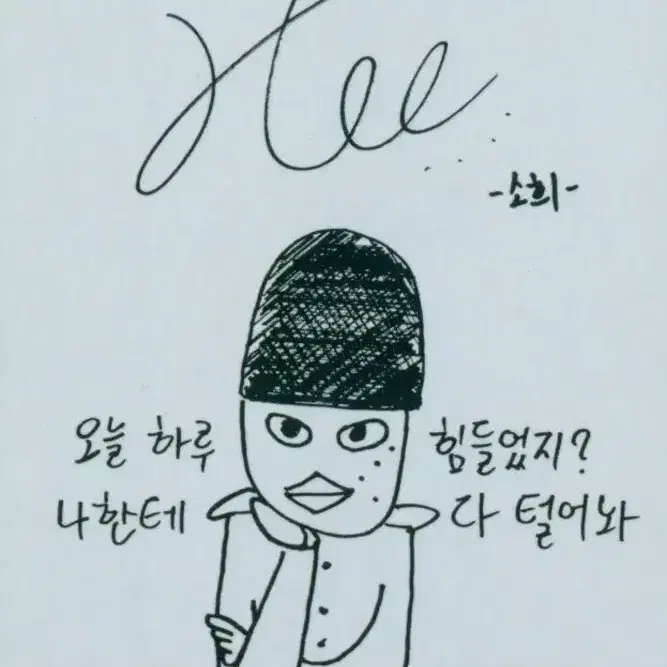 Hee
-소희-
오늘 하루 힘들었지?
나한테 다 털어놔